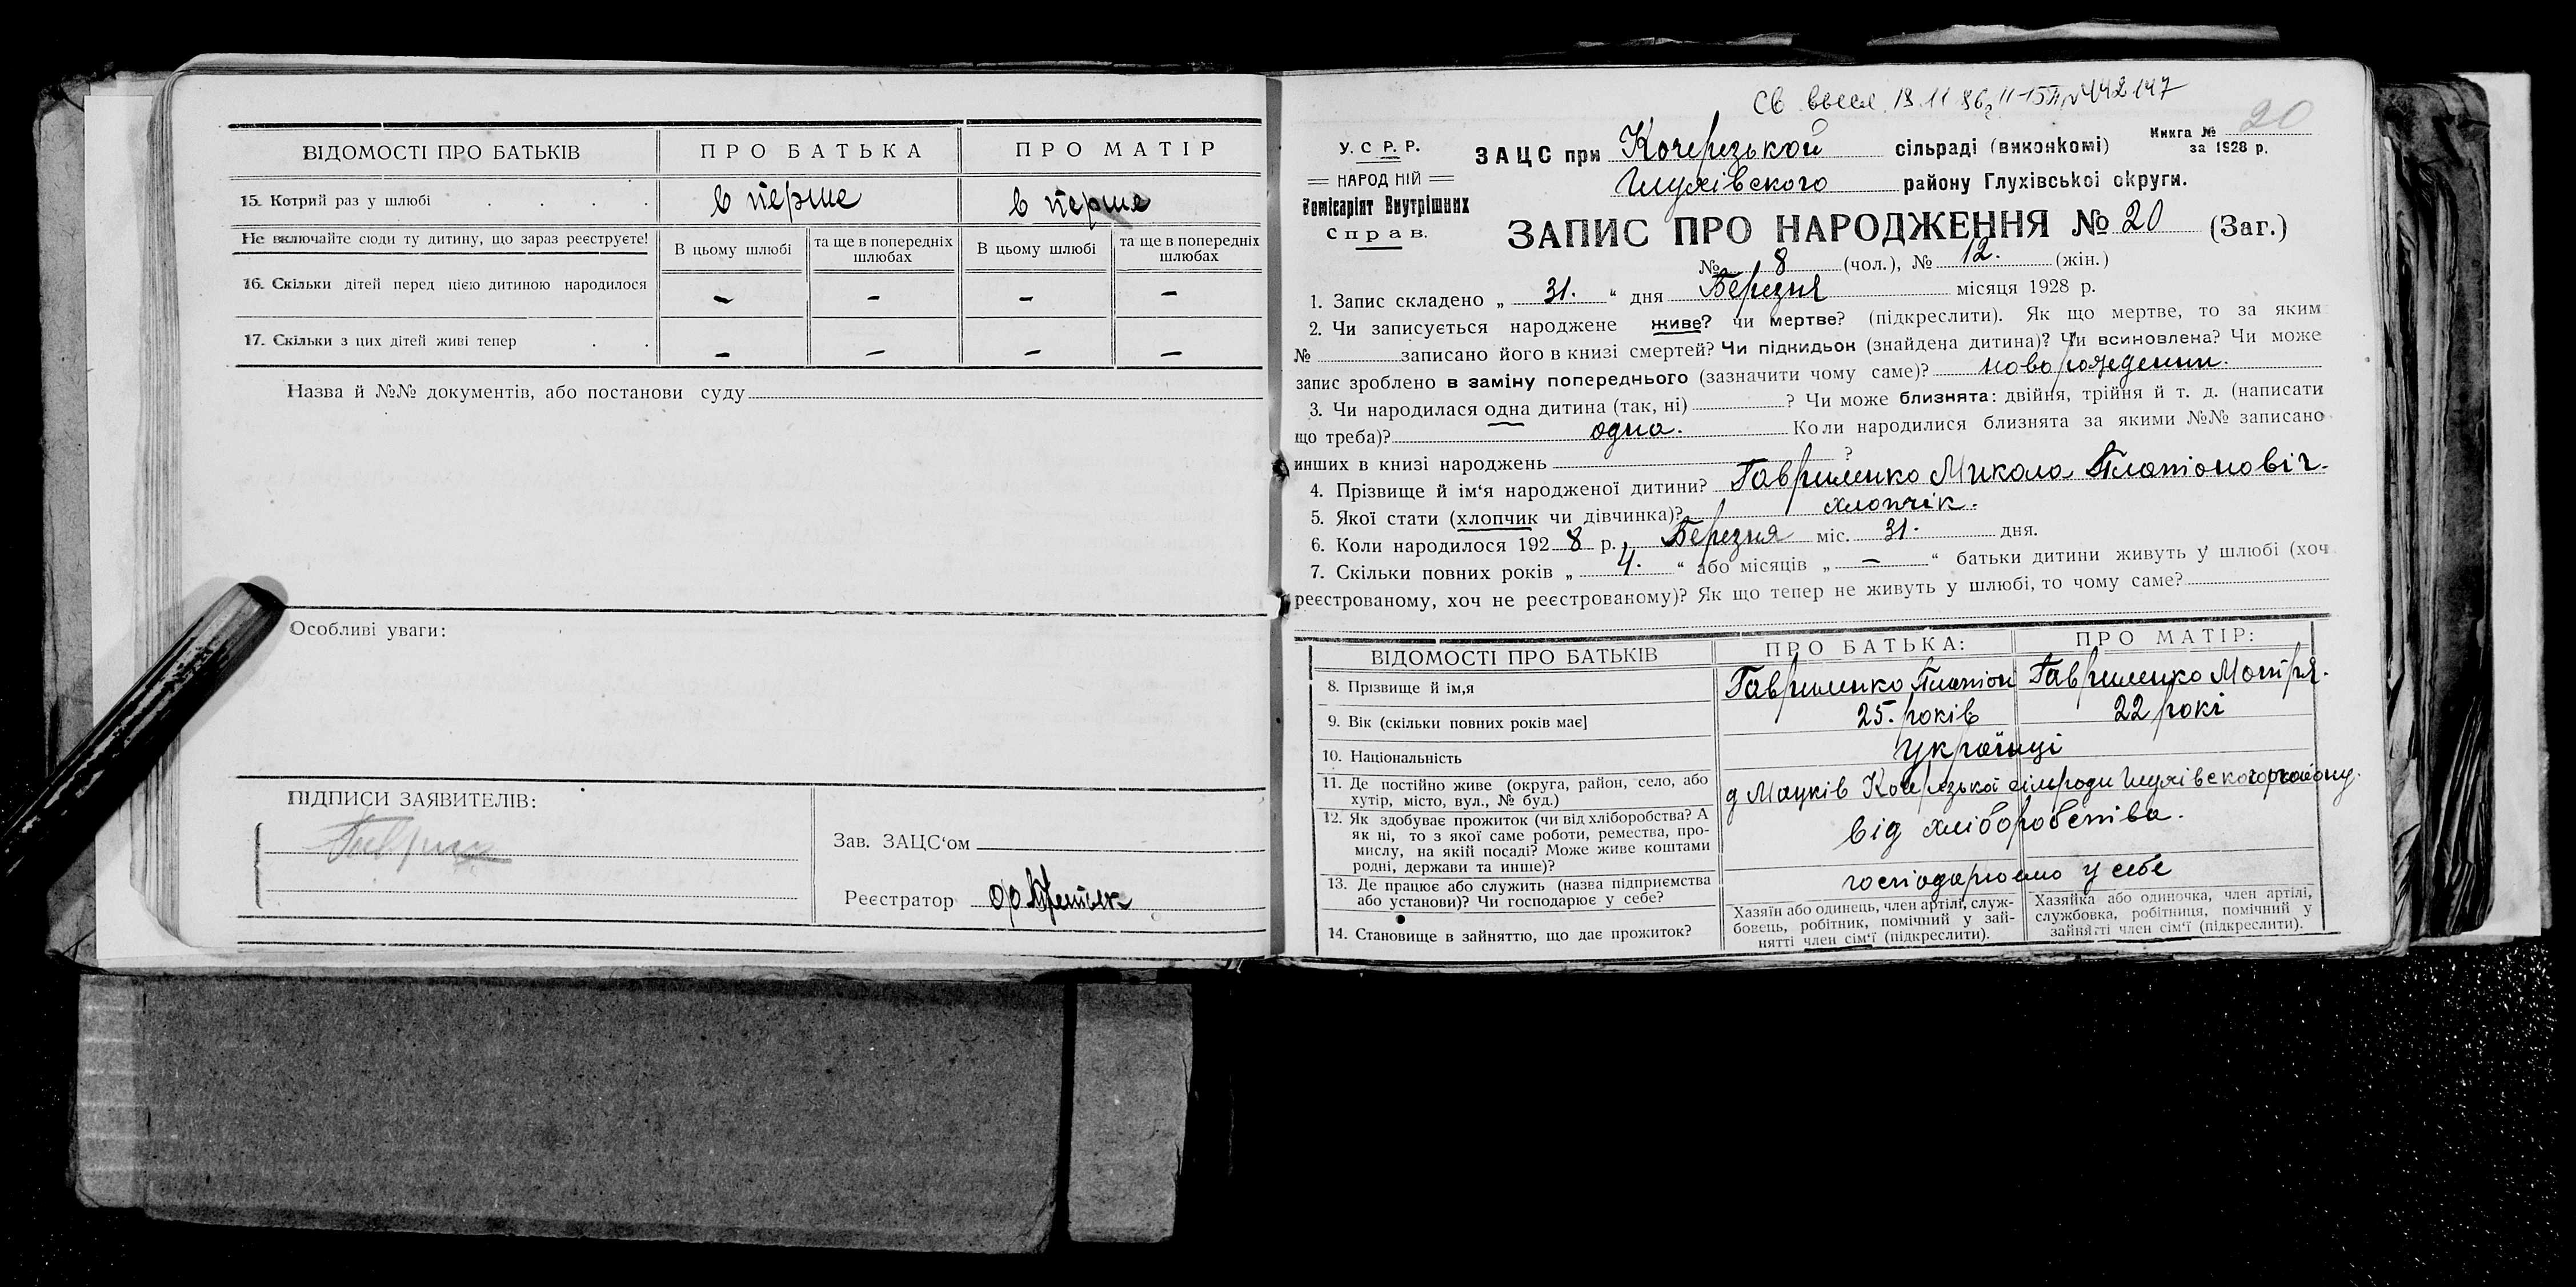 ВІДОМОСТІ ПРО БАТЬКІВ ПРО БАТЬКА ПРО МАТІР
15. Котрий раз у шлюбі . . . . в перше в перше
Не включайте сюди ту дитину, що зараз реєструєте! В цьому шлюбі та ще в попередніх шлюбах В цьому шлюбі та ще в попередніх шлюбах
16. Скільки дітей перед цією дитиною народилося – – – –
17. Скільки з цих дітей живі тепер . . – – – –
Назва й №№ документів, або постанови суду
Особливі уваги:
ПІДПИСИ ЗАЯВИТЕЛІВ:
Зав. ЗАЦС‘ом
Реєстратор
Св 19.11 86
Книга № 20
за 1928 р.
У. С Р. Р.
НАРОДНІЙ
Комісаріят Внутрішних
Справ.
ЗАЦС при Кочерезькой сільраді (виконкомі)
Глухівского району Глухівської округи.
ЗАПИС ПРО НАРОДЖЕННЯ № 20 (Заг.)
№ 8 (чол.), № 12. (жін.)
1. Запис складено „ 31. “ дня Березня місяця 1928 р.
2. Чи записується народжене живе? чи мертве? (підкреслити). Як що мертве, то за яким
№ записано його в книзі смертей? Чи підкидьок (знайдена дитина)? Чи всиновлена? Чи може
запис зроблено в заміну попереднього (зазначити чому саме)? новорождений.
3. Чи народилася одна дитина (так, ні) ? Чи може близнята: двійня, трійня й т. д. (написати
що треба)? одна. Коли народилися близнята за якими №№ записано
инших в книзі народжень ?
4. Прізвище й ім‘я народженої дитини? Гавриленко Микола Платіоновіч.
5. Якої стати (хлопчик чи дівчинка)? хлопчік.
6. Коли народилося 1928 р., Березня міс. 31. дня.
7. Скільки повних років „ 4. “ або місяців „ – “ батьки дитини живуть у шлюбі (хоч
реєстрованому, хоч не реєстрованому)? Як що тепер не живуть у шлюбі, то чому саме?
ВІДОМОСТІ ПРО БАТЬКІВ ПРО БАТЬКА: ПРО МАТІР:
8. Прізвище й ім,я Гавриленко Платіон Гавриленко Мотря.
9. Вік (скільки повних років має] 25. років 22 рокі
10. Національність українці
11. Де постійно живе (округа, район, село, або
хутір, місто, вул., № буд.) Кочерезької сільради Глухівского району.
12. Як здобуває прожиток (чи від хліборобства? А
як ні, то з якої саме роботи, ремества, про-
мислу, на якій посаді? Може живе коштами
родні, держави та инше)? від хліборобства.
13. Де працює або служить (назва підприємства
або установи)? Чи господарює у себе? господарюємо у себе
14. Становище в зайняттю, що дає прожиток?
Хазяїн або одинець, член артілі, служ-
бовець, робітник, помічний у зай-
нятті член сім‘ї (підкреслити).
Хазяйка або одиночка, член артілі,
службовка, робітниця, помічний у
зайнятті член сім‘ї (підкреслити).